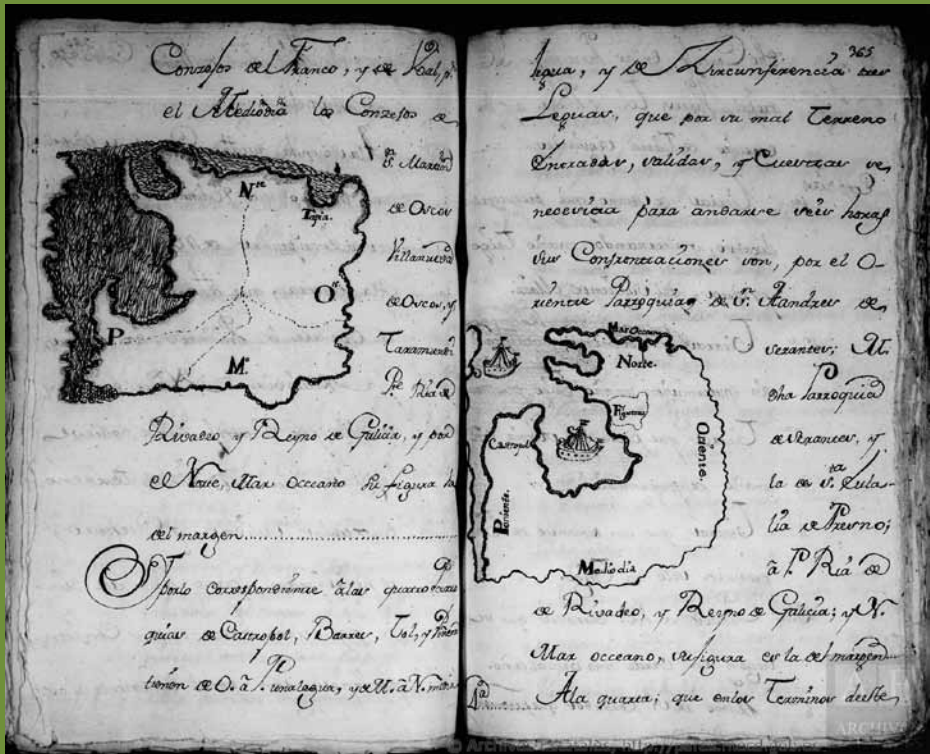 Conzejos del Franco, y de Boal, pr.
el Mediodia los Conzejos de
Sn. Martin
de Oscos
Villanueva
de Oscos, y
Taramundi
Pte. Ria de
Rivadeo, y Reyno de Galicia, y por
el Norte, Mar occeano su figura la
del margen
Y por lo correspondiente â las quatro
quias de Castropol, Barres, Tol, y
tienen de O. â P. una legua, y de M. â N. media
Nte.
Tapia
Ote.
P.
M.
365
legua, y de Zircunferencia tres
Leguas, que por su mal Terreno
Entradas, salidas, y Cuestas se
necesicia para andarse seis horas
sus Confrontaciones son, por el O-
riente Parroquias de Sn. Andres de
serantes; M.
dha Parroquia
de serantes, y
la de Sta. Eula-
lia de Presno;
â P. Ria de
de Rivadeo, y Reyno de Galicia; y N.
Mar occeano, su figura es la del margen
4a
Â la quarta; que en los Terminos deeste
Mar Occeano
Norte.
Figueras
Castropol
Oriente.
Poniente.
Mediodia
© Archivos Estatales, http://pares.mcu.es
ARCHIV